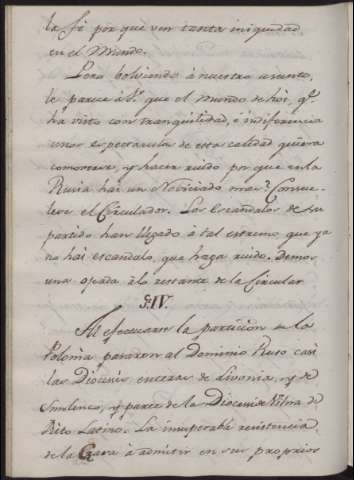 la fé por que ven tanta iniquidad
en el Mundo.
Pero bolviendo á nuestro asunto,
le parece á V. que el mundo de hoi, qe.
ha visto con tranquilidad, é indiferencia
unos espectaculos de esta calidad quiera
conmoverse, y hacer ruido por que en la
Rusia hai un Noviciado mas? Consue-
lese el Circulador. Los Escandalos de su
partido han llegado á tal extremo que ya
no hai escandalo, que haga ruido. Demos
una ojeada á lo restante de la Circular
§. IV.
Al efectuarse la particion de la
Polonia pasaron al Dominio Ruso casi
las Diocesis enteras de Livonia, y de
Smolenco, y parte de la Diocesis de Vilna de
Rito Latino. La insuperable resistencia
de la Czara á admitir en sus proprios